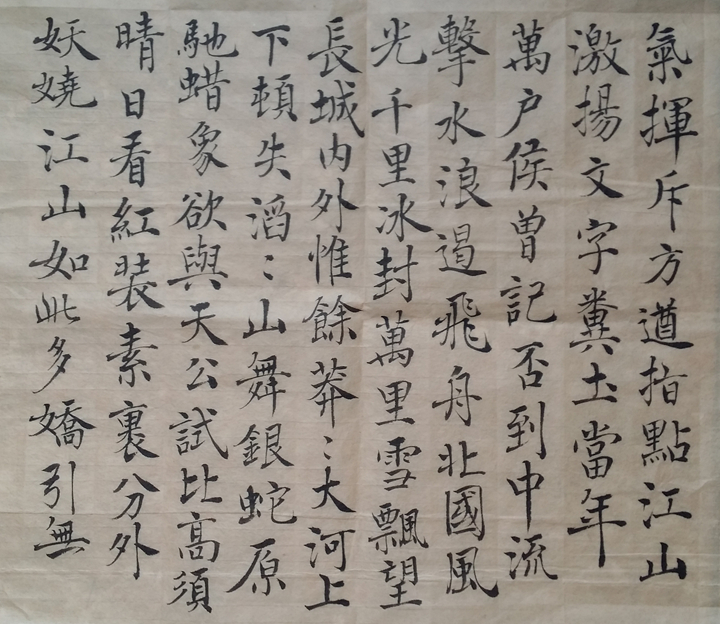 氣揮斥方遒指點江山
激揚文字糞土當年
萬户侯曾記否到中流
擊水浪遏飛舟北國風
光千里冰封萬里雪飄望
長城内外惟餘莽〻大河上
下頓失滔〻山舞銀蛇原
馳蜡象欲與天公試比高須
晴日看紅裝素裹分外
妖嬈江山如此多嬌引無